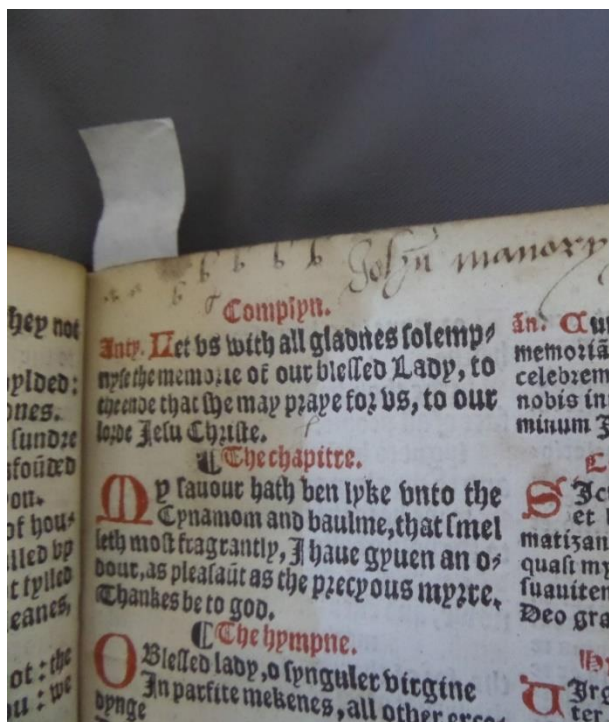 John manory
hey not
yslded:
ones.
sundre
sfoūded
on.
of hous
lled vp
t tylled
eanes,
ot: the
ou: we
Complyn.
Anty. Let vs with all gladnes solemp⸗
nyse the memorie of our blessed Lady, to
the ende that she may praye for vs, to our
lorde Jesu Christe.
¶ The chapitre.
My sauour hath ben lyke vnto the
Cynamom and baulme, that smel
leth most fragrantly, I haue gyuen an o⸗
dour, as pleasaūt as the precyous myrre.
Thankes be to god.
¶ The hympne.
O Blessed lady, o synguler virgine
In parfite mekenes, all other
dynge
ān. Cu
memoriā
celebrem
nobis in
minum J
Sic
et
matizan
quasi my
suauitem
Deo gra
Hy
Virg
ter